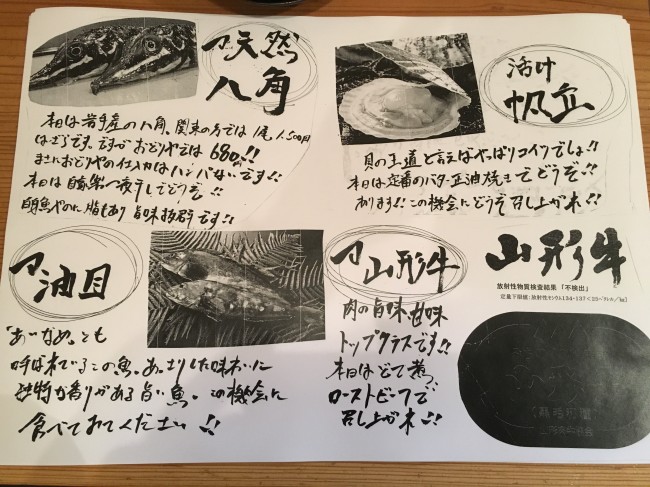 天然
八角
本日は岩手産の八角、関東の方では1尾1,500円
はざらです。ですがおどりやでは680円!!
まさにおどりやの仕入れはハンパないです!!
本日は自家製一夜干しでどうぞ!!
白身魚なのに脂もあり旨味抜群です!!
活け
帆立
貝の王道と言えばやっぱりコイツでしょ!!
本日は定番のバター正油焼きでどうぞ!!
あります!!この機会にどうぞ召し上がれ!!
油目
「あいなめ」とも
呼ばれているこの魚。あっさりした味わいに
独特な香りがある旨い魚。この機会に
食べてみてください!!
山形牛
肉の旨味、甘味
トップクラスです!!
本日はどて煮、
ローストビーフで
召し上がれ!!
山形牛
放射性物質検査結果「不検出」